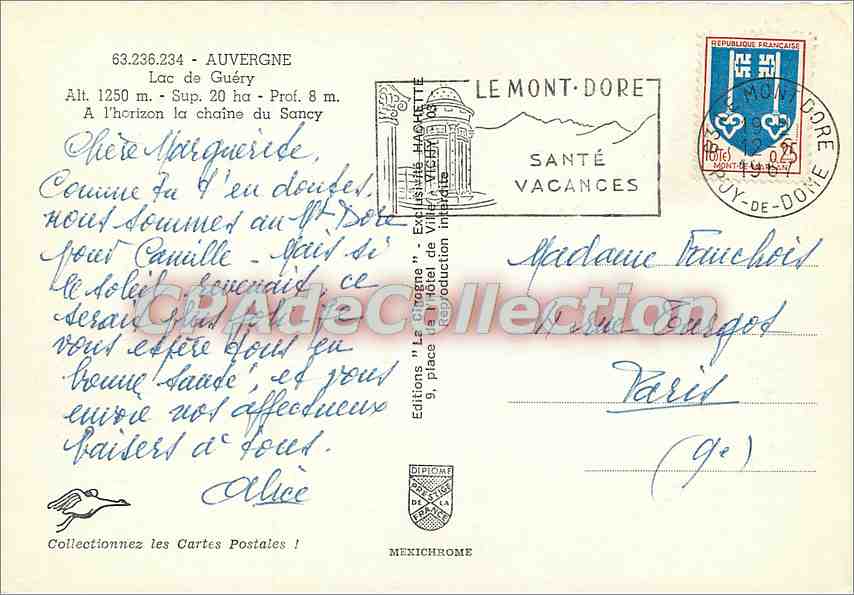 63.236.234 - AUVERGNE
Lac de Guéry
Alt. 1250 m. - Sup. 20 ha - Prof. 8 m.
A l'horizon la chaîne du Sancy
Chère Marguerite,
Comme tu t'en doutes,
nous sommes au Mt Dore
pour Camille - Mais si
le soleil revenait, ce
serait plus gai. Je
vous espère tous en
bonne santé, et vous
envoie nos affectueux
baisers à tous.
Alice
Collectionnez les Cartes Postales !
Editions "La Cigogne" - Exclusivité HACHETTE
9, place de l'Hôtel de Ville, VICHY 03
Reproduction interdite
DIPLOME
PRESTIGE
DE LA
FRANCE
MEXICHROME
LE MONT-DORE
SANTÉ
VACANCES
REPUBLIQUE FRANÇAISE
POSTES 0,25
MONT-DE-MARSAN
LE MONT DORE
19 H
12 -6
1967
PUY-DE-DOME
Madame Fauchois
rue Turgot
Paris
(9e)
CPAdeCollection